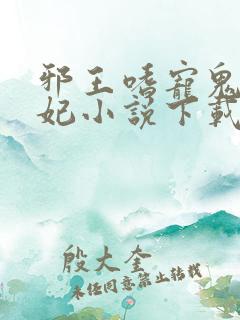 邪王嗜寵鬼
妃小說下載
殷大奎
未經同意禁止轉載